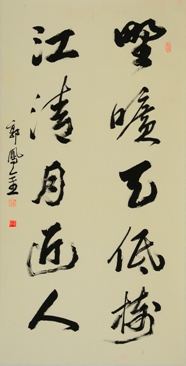 野曠天低樹
江清月近人
郭鳳